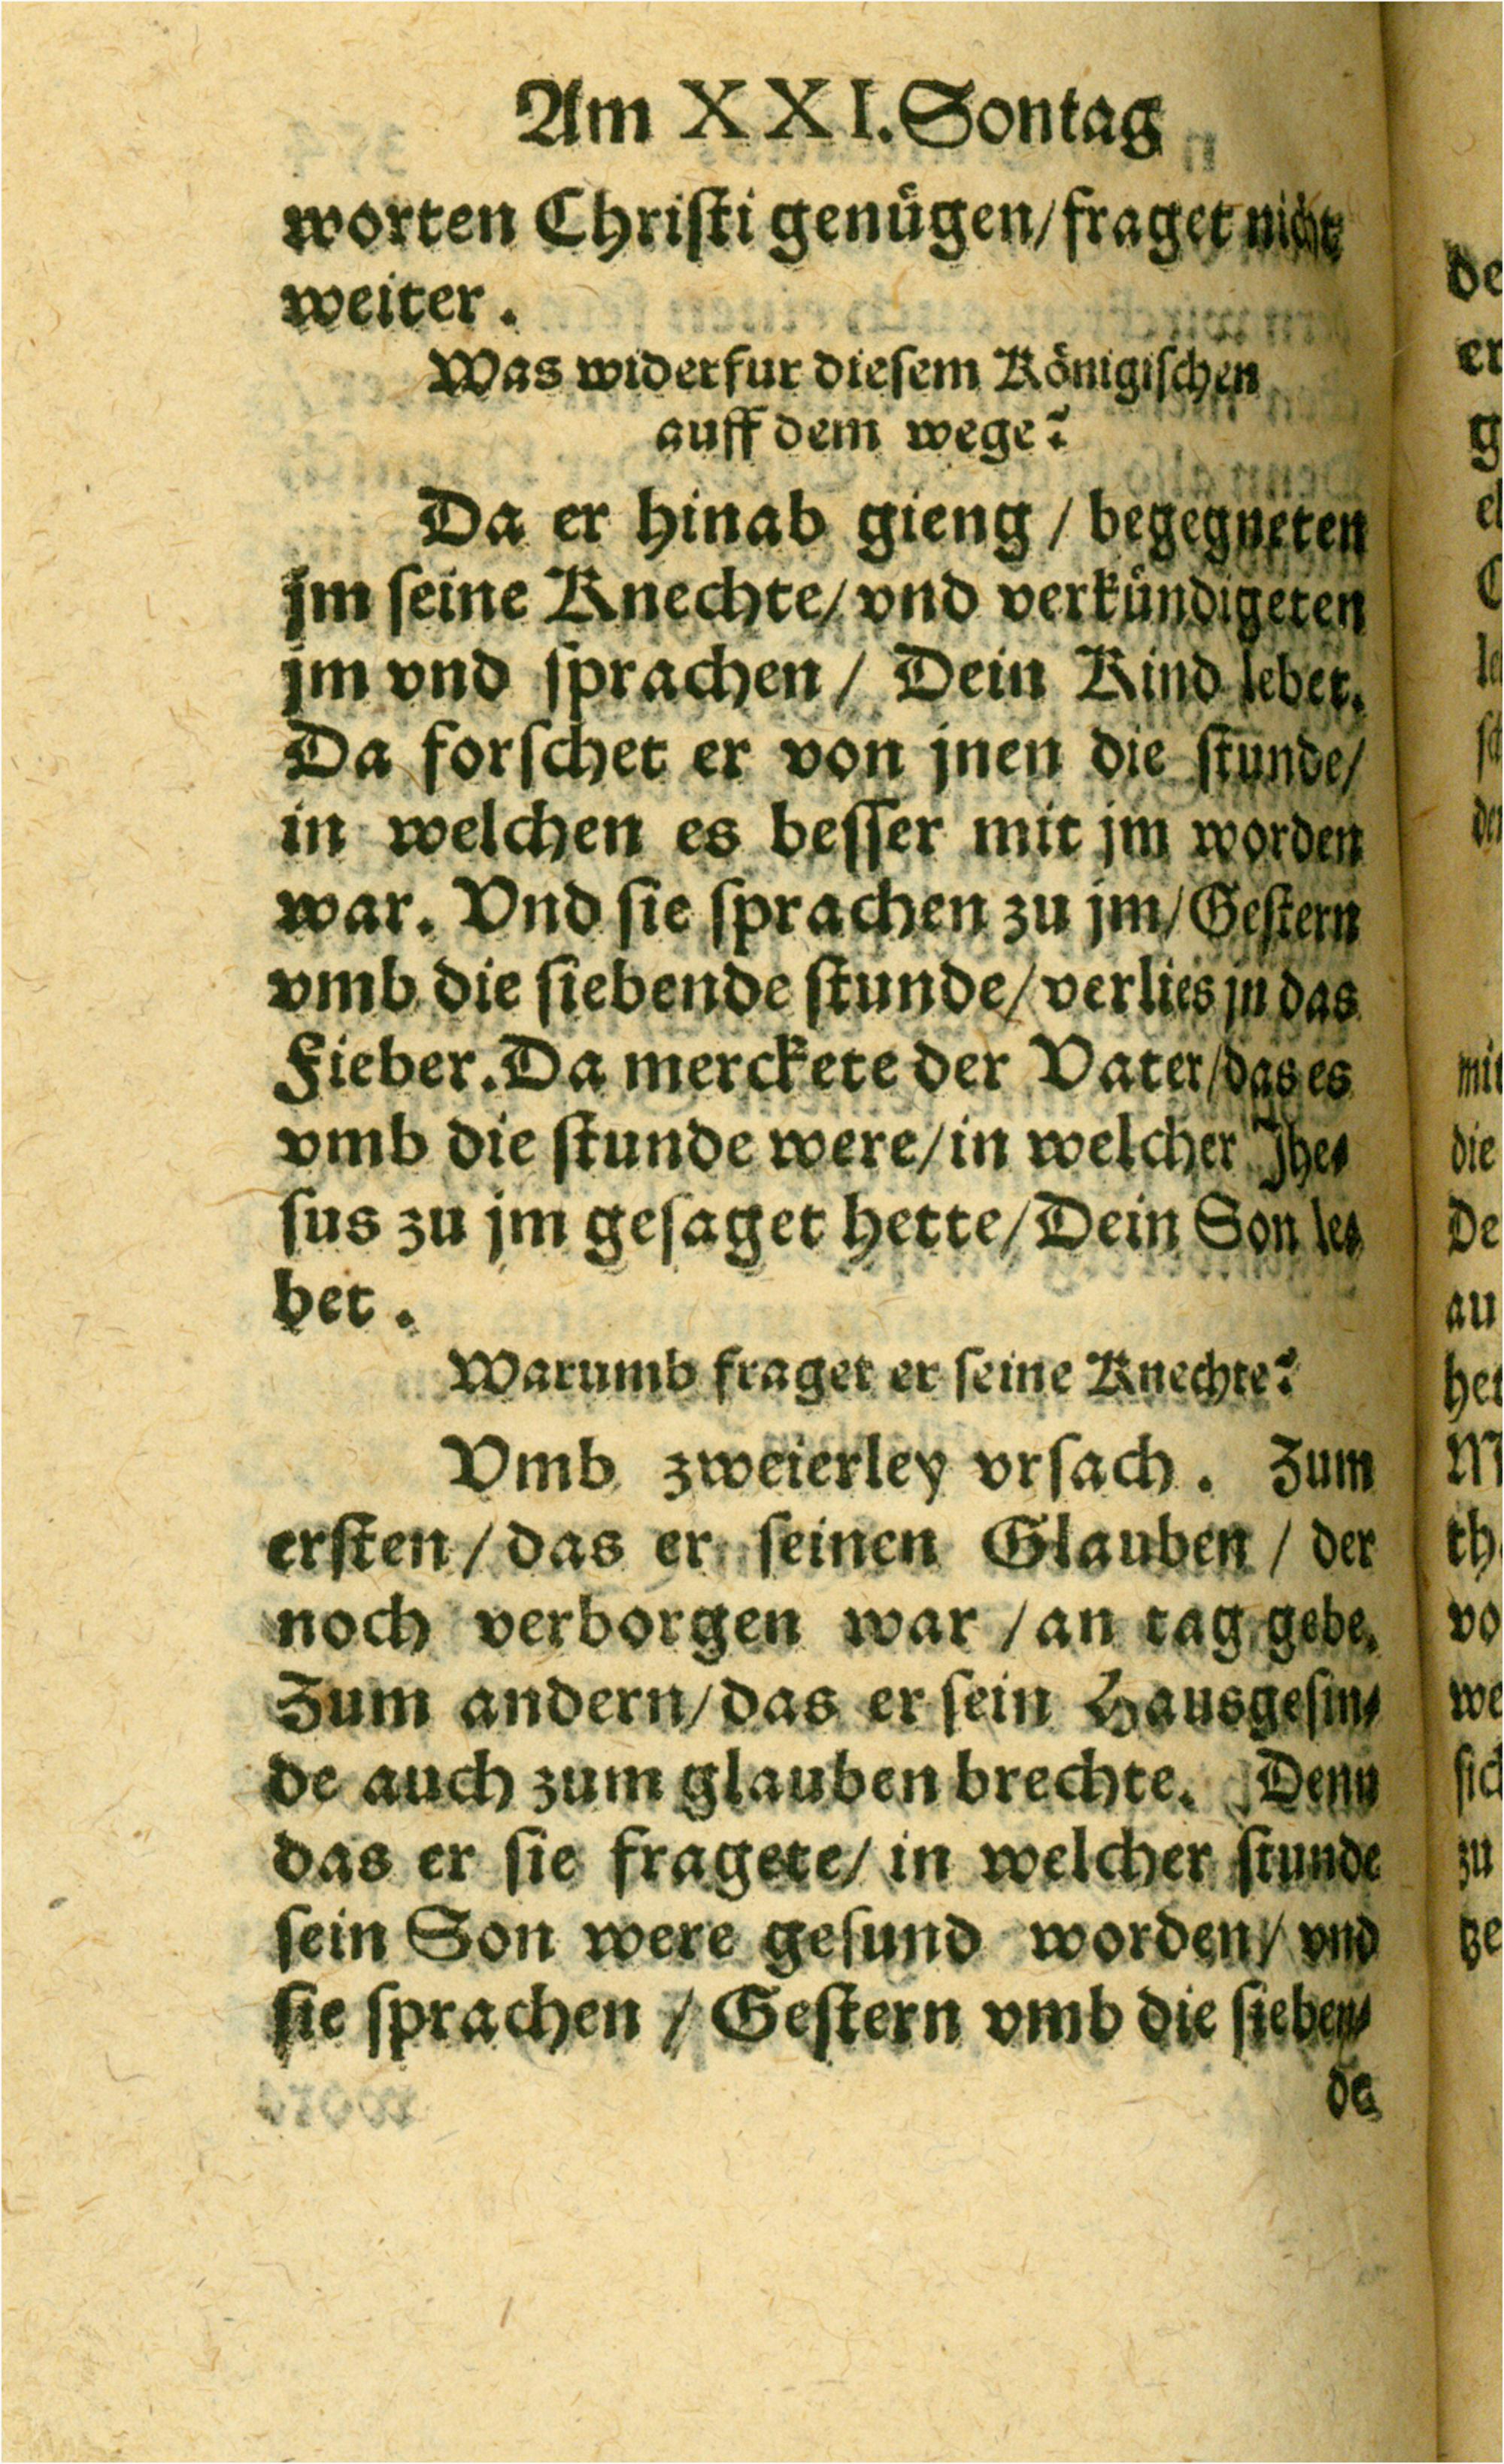 Am XXI. Sontag
worten Chriſti genuͤgen/ fraget nicht
weiter.
Was widerfur dieſem Koͤnigiſchen
auff dem wege?
Da er hinab gieng / begegneten
jm ſeine Knechte/ vnd verkuͤndigeten
jm vnd ſprachen / Dein Kind lebet.
Da forſchet er von jnen die ſtunde/
in welchen es beſſer mit jm worden
war. Vnd ſie ſprachen zu jm/ Geſtern
vmb die ſiebende ſtunde/ verlies jn das
Fieber. Da merckete der Vater/ das es
vmb die ſtunde were/ in welcher Jhe⸗
ſus zu jm geſaget hette/ Dein Son le⸗
bet.
Warumb fraget er ſeine Knechte?
Vmb zweierley vrſach. Zum
erſten / das er ſeinen Glauben / der
noch verborgen war / an tag gebe.
Zum andern/ das er ſein Hausgeſin⸗
de auch zum glauben brechte. Denn
das er ſie fragete/ in welcher ſtunde
ſein Son were geſund worden/ vnd
ſie ſprachen / Geſtern vmb die ſieben⸗
de